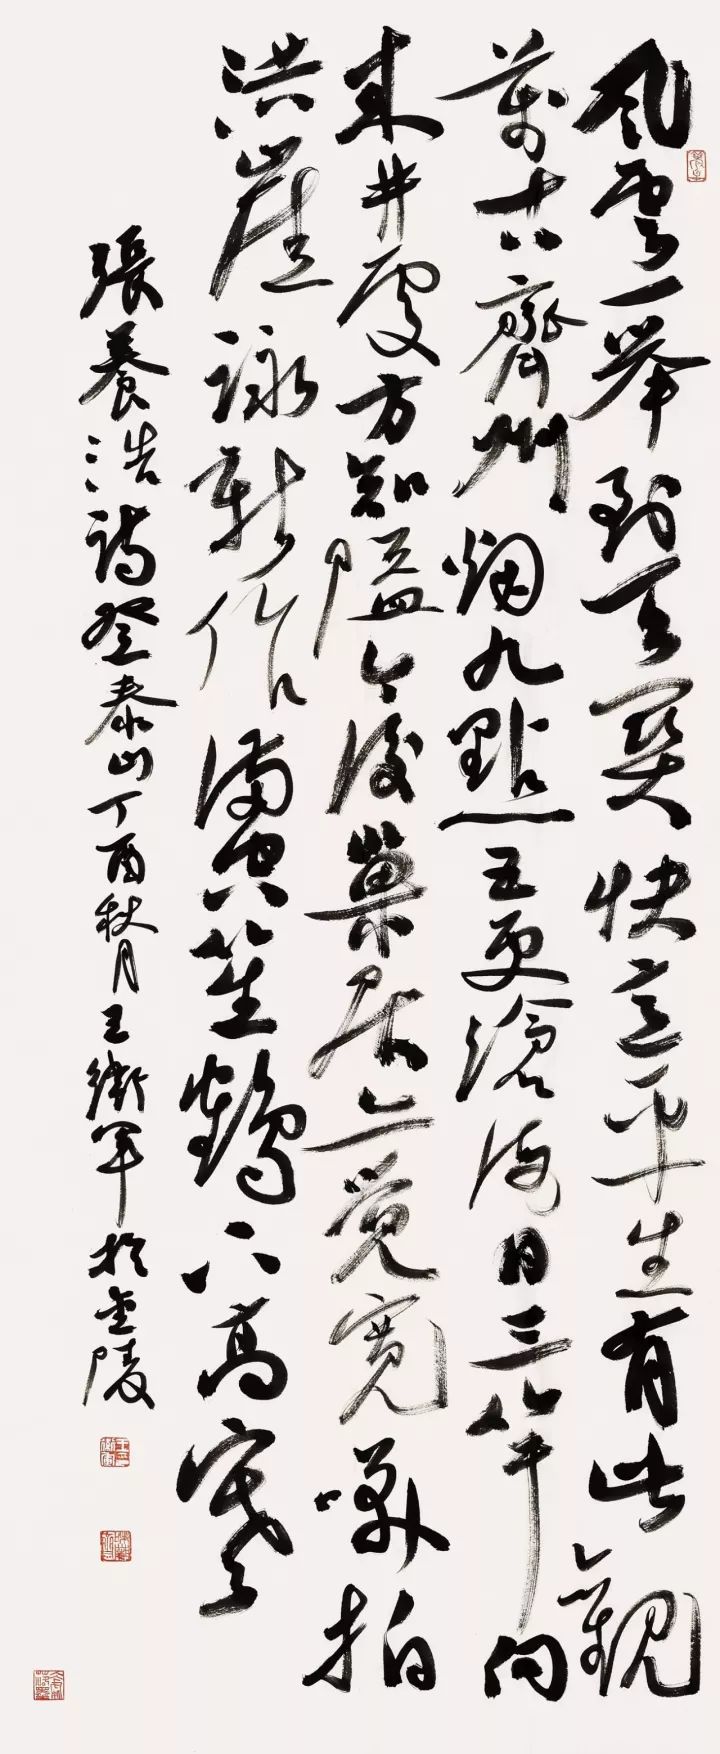 風雲一举到天関快意平生有此觀
萬古齊州烟九點五更滄海日三竿向
來井處方知隘今後巢居亦覺寬咲拍
洪崖詠新作滿空笙鶴下高寒
張養浩詩登泰山丁酉秋月王衛軍於金陵